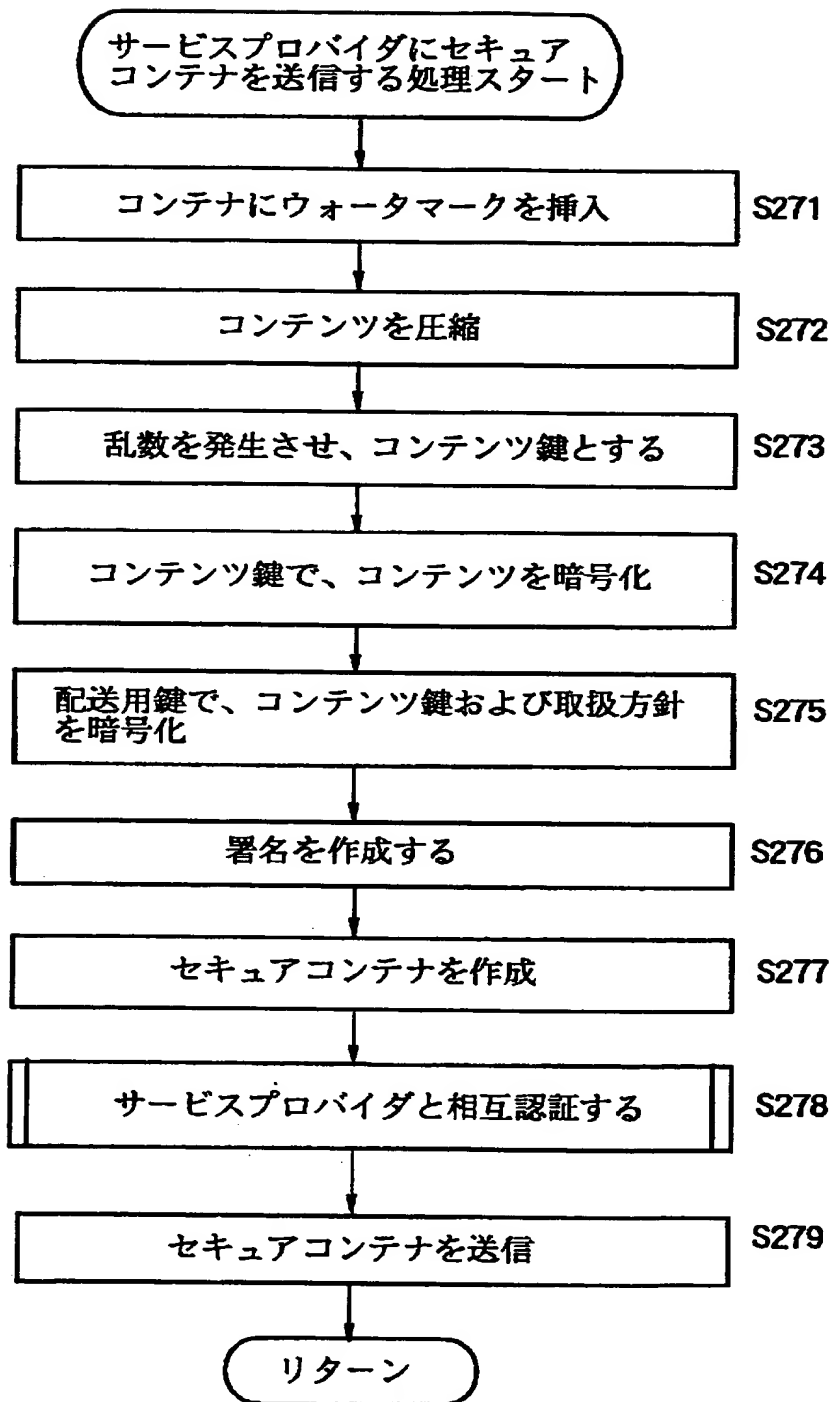 サービスプロバイダにセキュア
コンテナを送信する処理スタート
コンテナにウォータマークを挿入 S271
コンテンツを圧縮 S272
乱数を発生させ、コンテンツ鍵とする S273
コンテンツ鍵で、コンテンツを暗号化 S274
配送用鍵で、コンテンツ鍵および取扱方針 S275
を暗号化
署名を作成する S276
セキュアコンテナを作成 S277
サービスプロバイダと相互認証する S278
セキュアコンテナを送信 S279
リターン